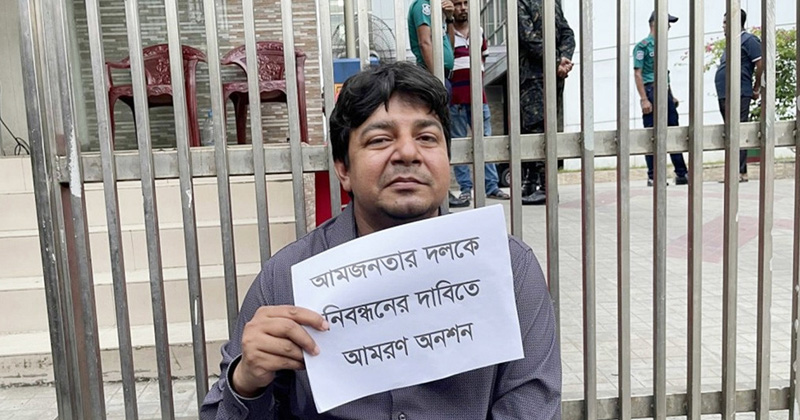 আমজনতার দলকে
নিবন্ধনের দাবিতে
আমরণ অনশন